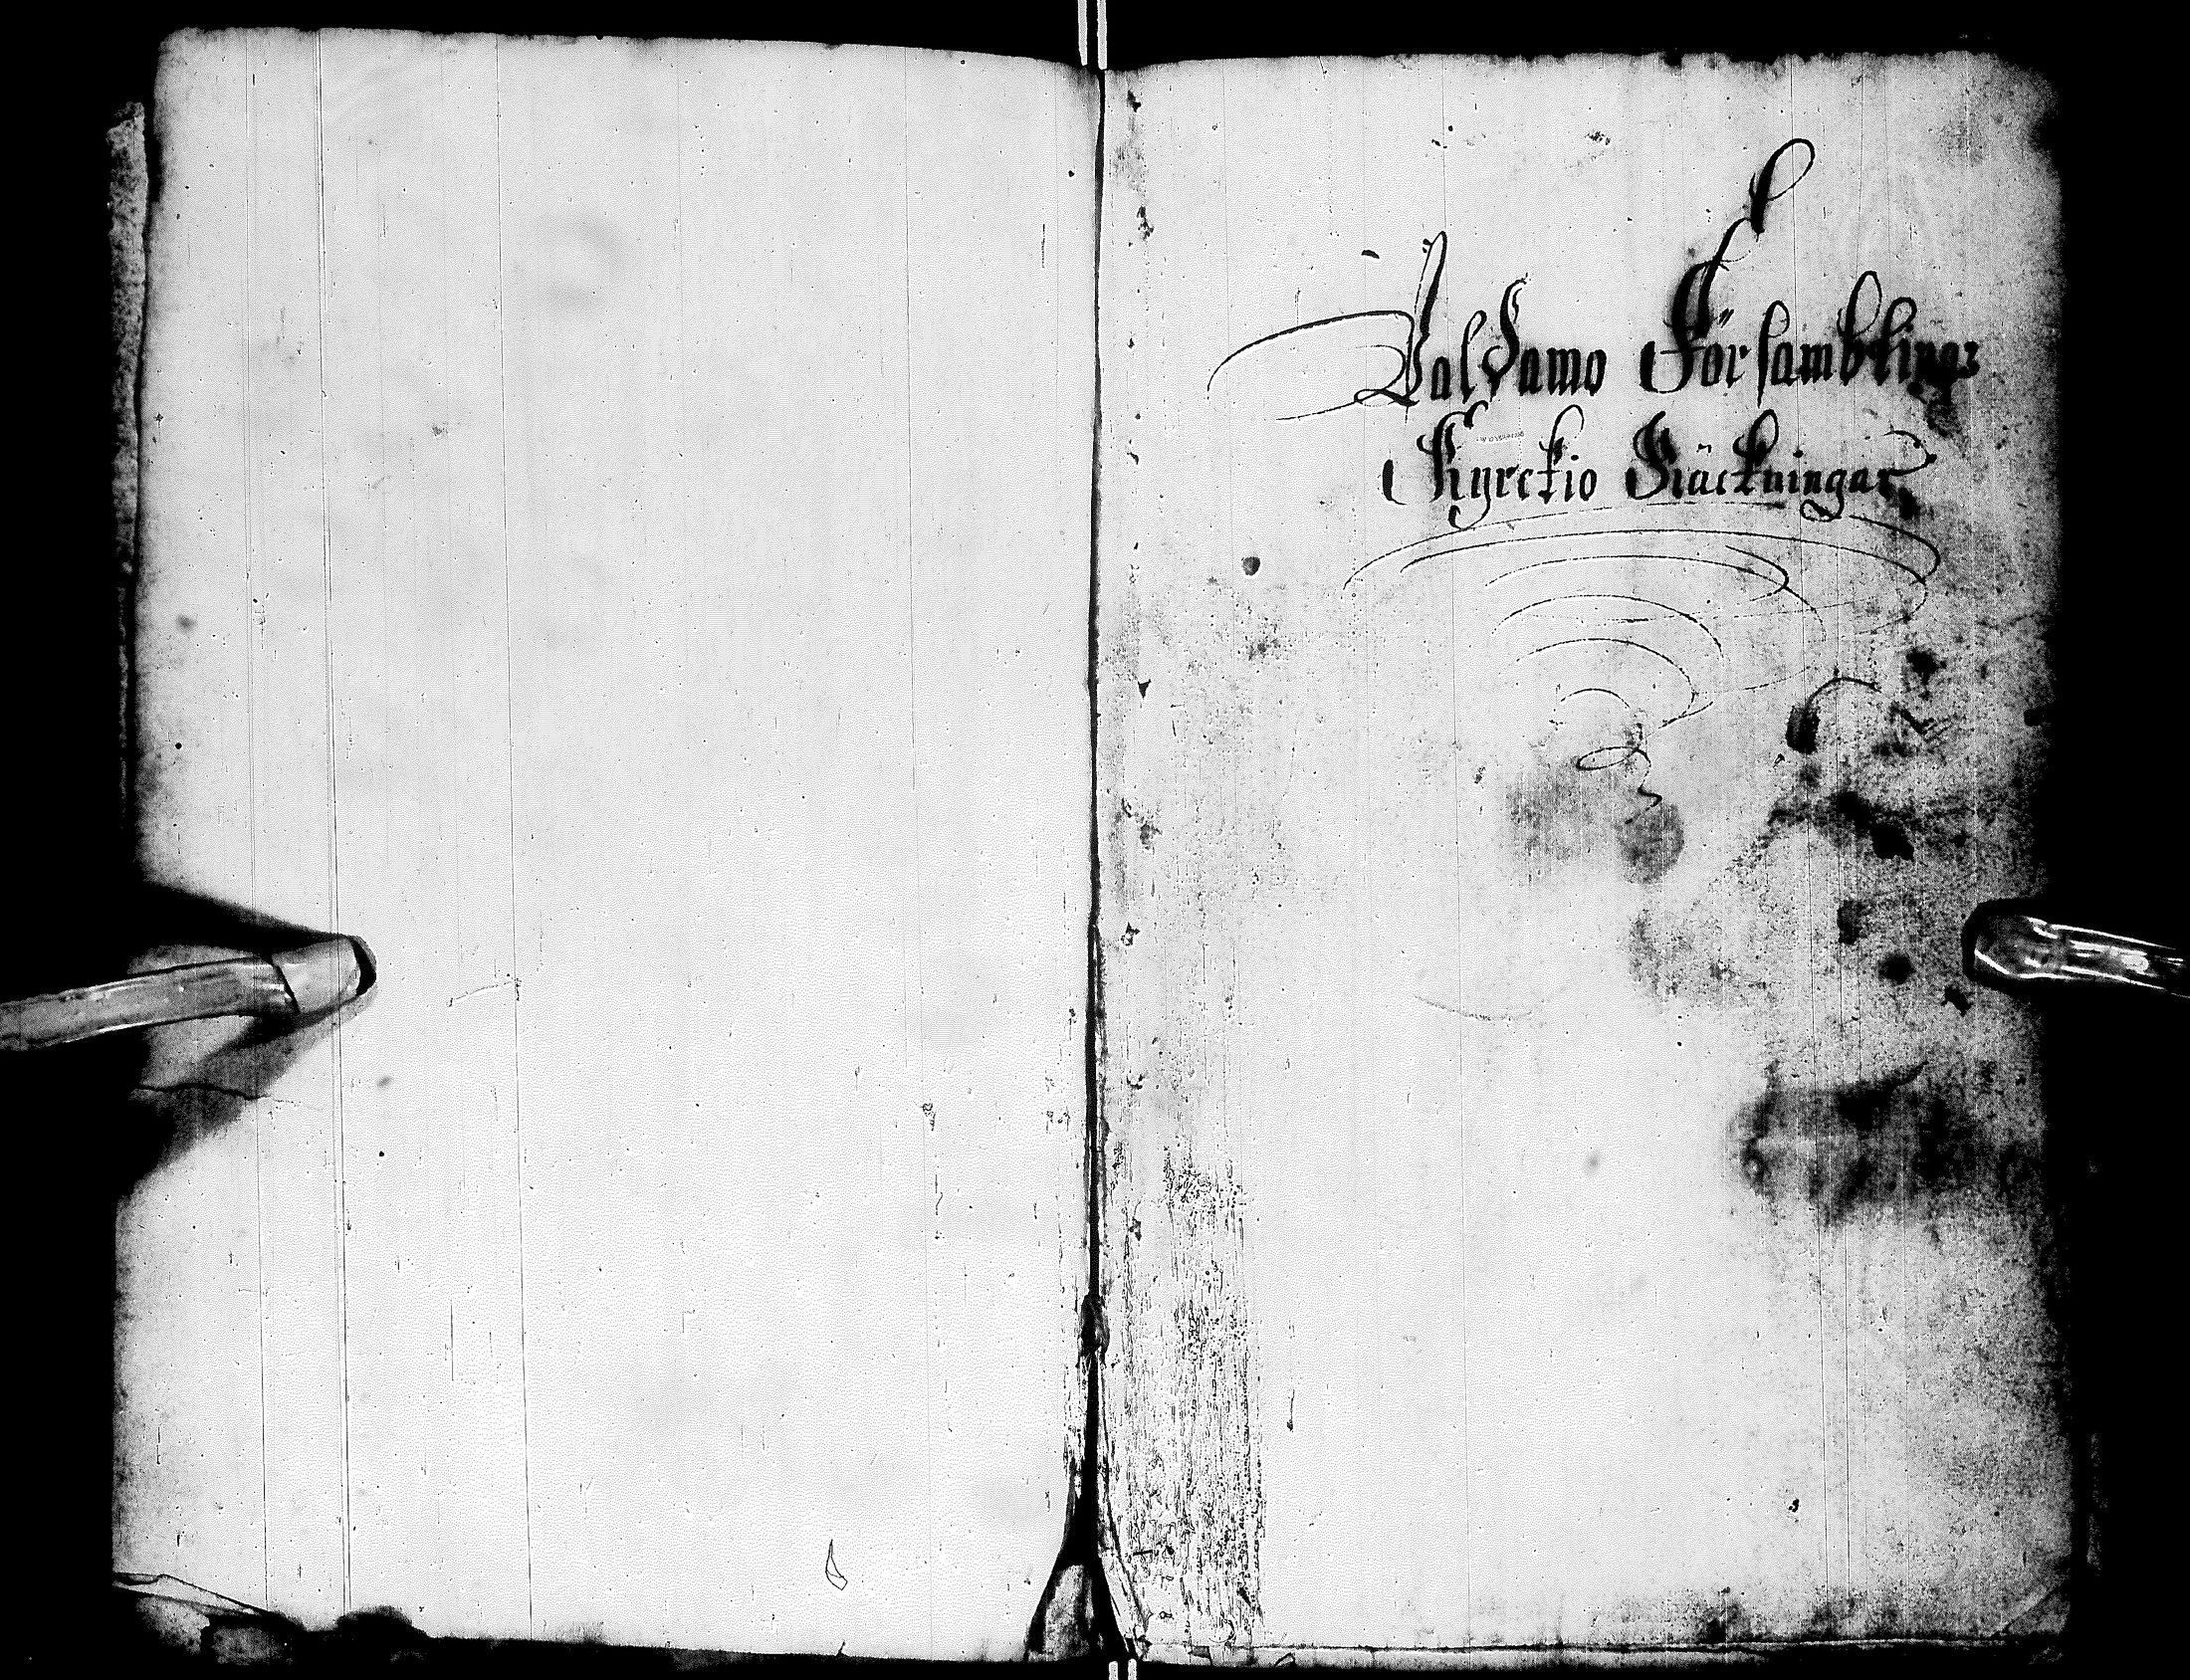 Valdamo Församblings
Kyrckio Räckningar